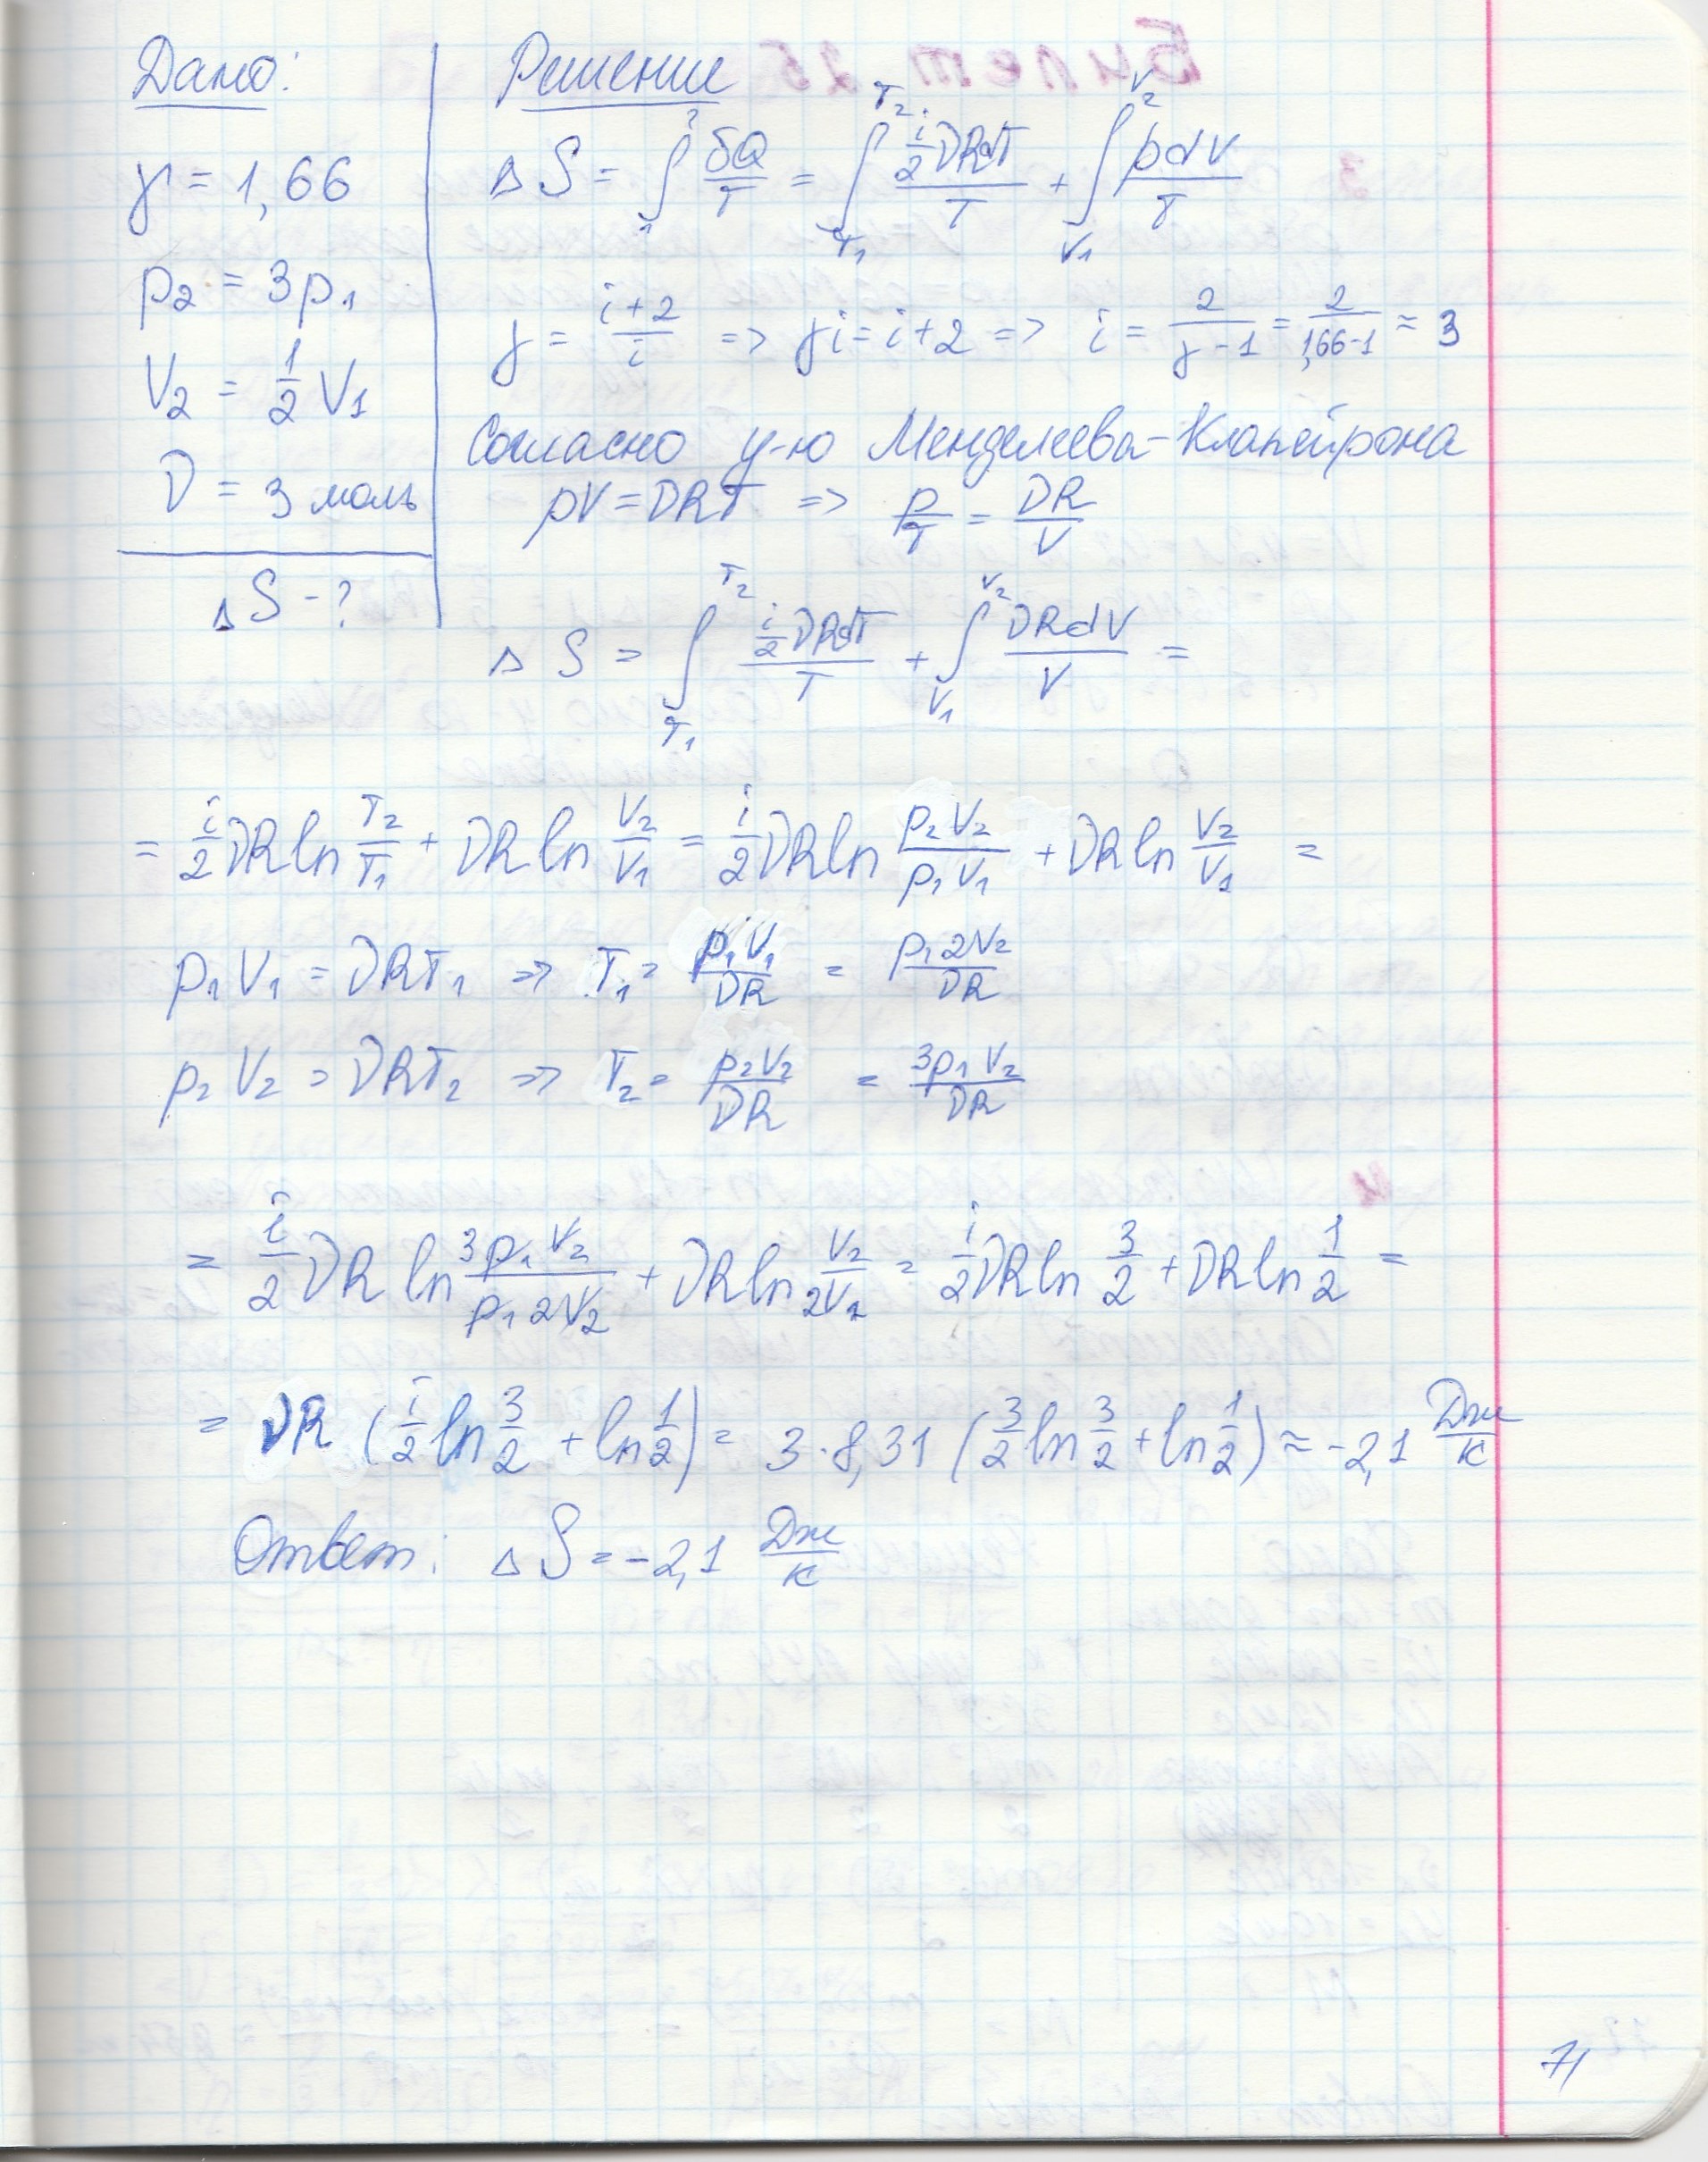 Дано:
γ = 1,66
p₂ = 3p₁
V₂ = 1/2 V₁
ν = 3 моль
ΔS - ?
Решение
ΔS = ∫₁² δQ/T = ∫_{T₁}^{T₂} (i/2 νRdT)/T + ∫_{V₁}^{V₂} pdV/T
γ = (i+2)/i => γi = i+2 => i = 2/(γ-1) = 2/(1,66-1) ≈ 3
Согласно у-ю Менделеева-Клапейрона
pV = νRT => p/T = νR/V
ΔS = ∫_{T₁}^{T₂} (i/2 νRdT)/T + ∫_{V₁}^{V₂} νRdV/V =
= i/2 νR ln T₂/T₁ + νR ln V₂/V₁ = i/2 νR ln p₂V₂/p₁V₁ + νR ln V₂/V₁ =
p₁V₁ = νRT₁ => T₁ = p₁V₁/νR = p₁2V₂/νR
p₂V₂ = νRT₂ => T₂ = p₂V₂/νR = 3p₁V₂/νR
= i/2 νR ln 3p₁V₂/p₁2V₂ + νR ln V₂/2V₂ = i/2 νR ln 3/2 + νR ln 1/2 =
= νR (i/2 ln 3/2 + ln 1/2) = 3·8,31 (3/2 ln 3/2 + ln 1/2) ≈ -2,1 Дж/К
Ответ: ΔS = -2,1 Дж/К
71